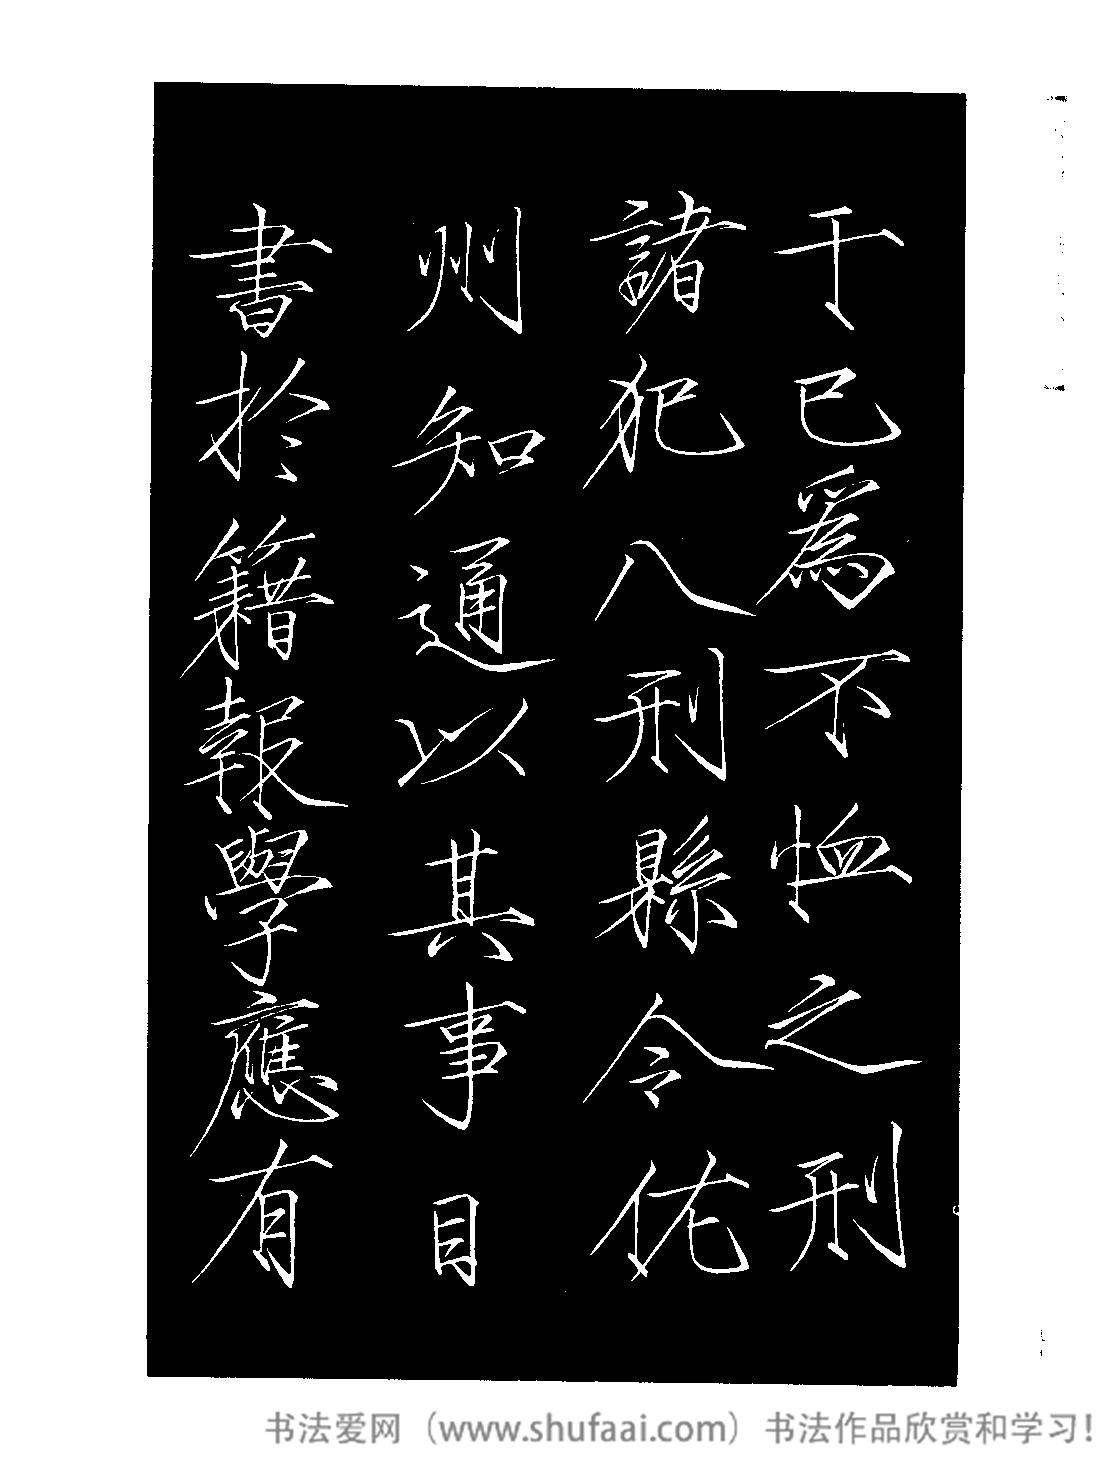 于己為不恤之刑
諸犯八刑縣令佐
州知通以其事目
書於籍報學應有
书法爱网（www.shufaai.com）书法作品欣赏和学习！